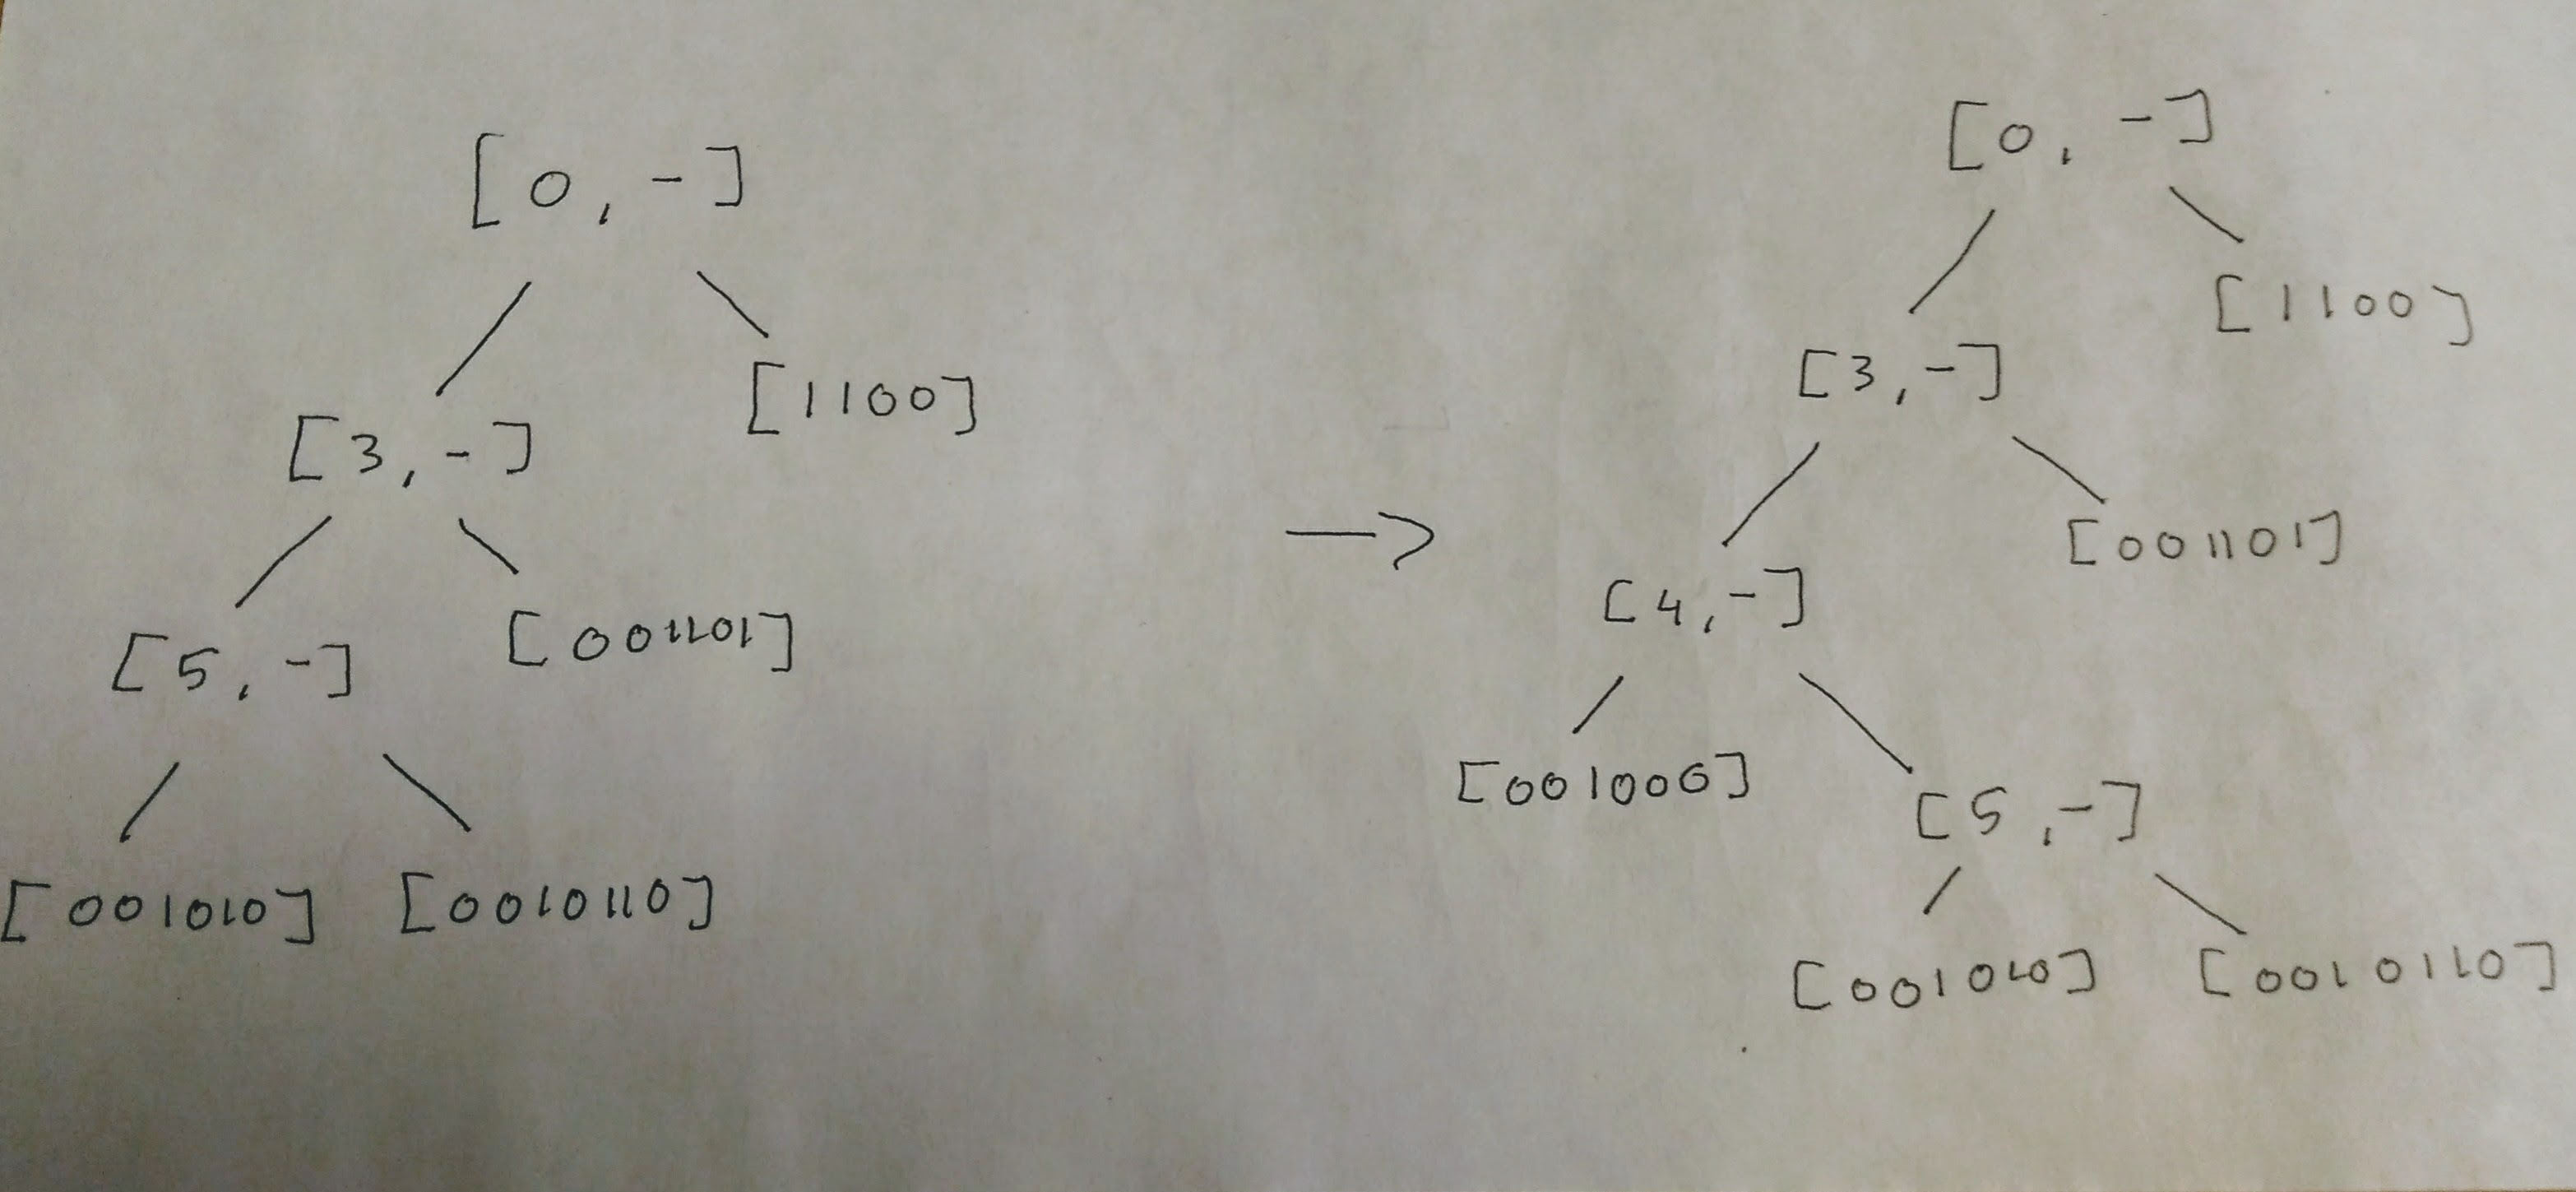 [0, -]
[3, -]
[1100]
[5, -]
[001101]
[001010]
[0010110]
->
[0, -]
[1100]
[3, -]
[001101]
[4, -]
[001000]
[5, -]
[001010]
[0010110]